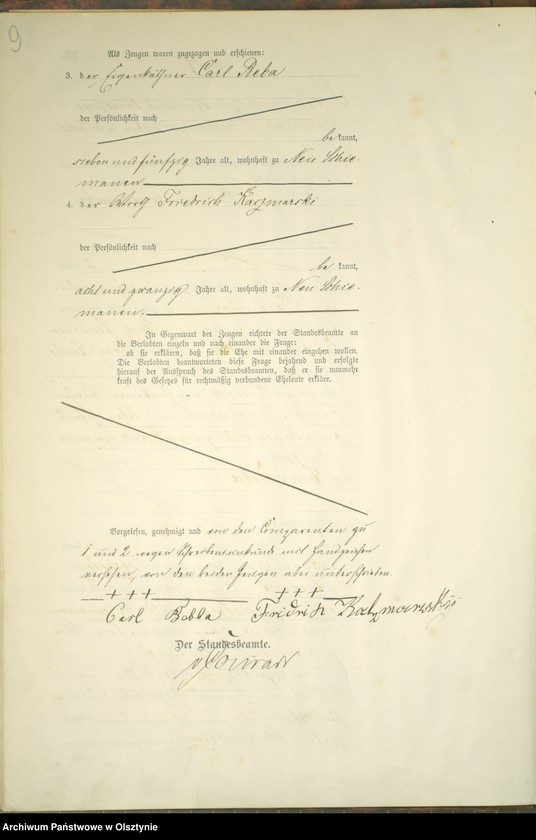 9
Als Zeugen waren zugezogen und erschienen:
3. der Eigenkäthner Carl Beba
der Persönlichkeit nach
be kannt,
sieben und fünfzig Jahre alt, wohnhaft zu Neu Schie-
manen.
4. der Wirth Friedrich Kaczmarski
der Persönlichkeit nach
be kannt,
acht und zwanzig Jahre alt, wohnhaft zu Neu Schie-
manen.
In Gegenwart der Zeugen richtete der Standesbeamte an
die Verlobten einzeln und nach einander die Frage:
ob sie erklären, daß sie die Ehe mit einander eingehen wollen.
Die Verlobten beantworteten diese Frage bejahend und erfolgte
hierauf der Ausspruch des Standesbeamten, daß er sie nunmehr
kraft des Gesetzes für rechtmäßig verbundene Eheleute erkläre.
Vorgelesen, genehmigt und von den Comparenten zu
1 und 2 wegen Schreibensunkunde mit Handzeichen
versehen, von den beiden Zeugen aber unterschrieben.
+++ +++
Carl Bobba Fridrich
Der Standesbeamte.
Archiwum Państwowe w Olsztynie